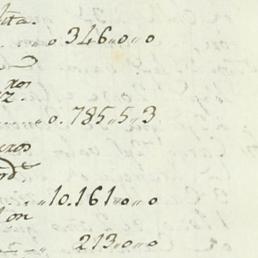 lta.
..0.346,,0,,0
xos
z.
....0.785,,5,,3
exos
ord.
..10.161,,0,,0
l on
213,,0,,0